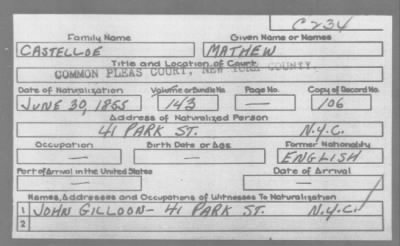 C234
Family Name Given Name or Names
CASTELLOE MATHEW
Title and Location of Court
COMMON PLEAS COURT, NEW YORK COUNTY
Date of Naturalization Volume or Bundle No. Page No. Copy of Record No.
JUNE 30, 1855 143 — 106
Address of Naturalized Person
41 PARK ST. N.Y.C.
Occupation Birth Date or Age Former Nationality
— — ENGLISH
Port of Arrival in the United States Date of Arrival
— —
Names, Addresses and Occupations of Witnesses To Naturalization
1 JOHN GILLOON- 41 PARK ST. N.Y.C.
2